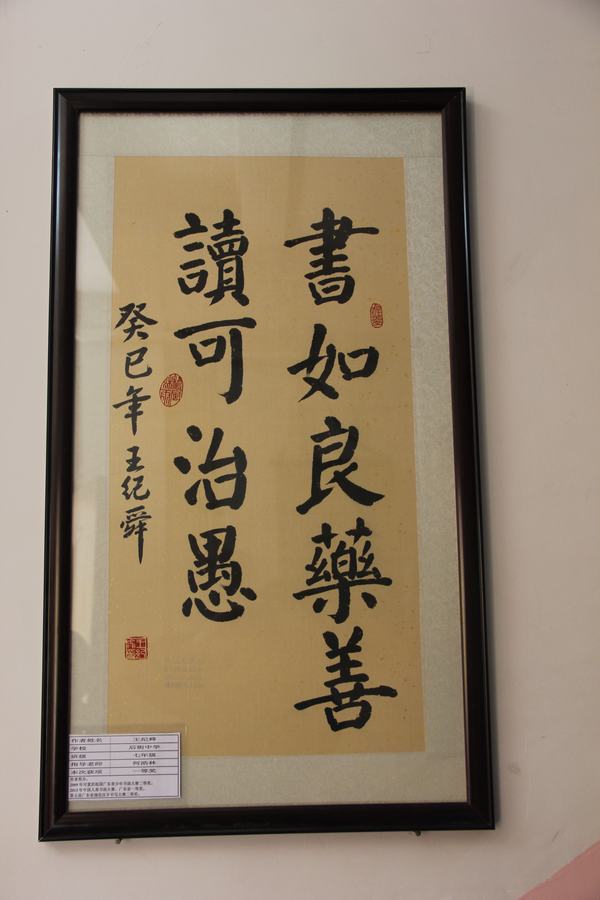 書如良藥善
讀可治愚
癸巳年 王纪舜
作者姓名 王纪舜
学校 后街中学
班级 七年级
指导老师 何浩林
本次获项 一等奖